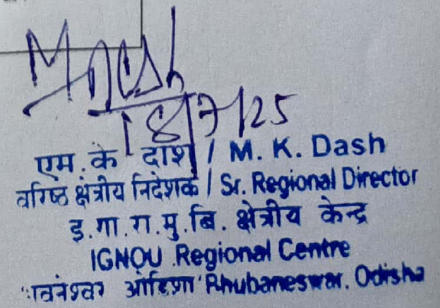 18/7/25
एम. के दाश / M. K. Dash
वरिष्ठ क्षेत्रीय निदेशक / Sr. Regional Director
इ.गा.रा.मु.बि. क्षेत्रीय केन्द्र
IGNOU Regional Centre
ओडिशा Bhubaneswar, Odisha